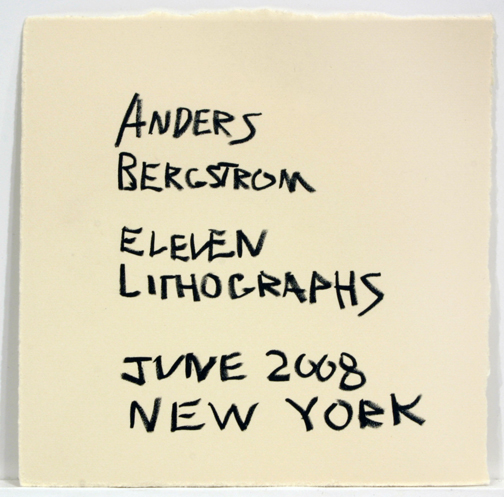 ANDERS
BERGSTROM
ELEVEN
LITHOGRAPHS
JUNE 2008
NEW YORK